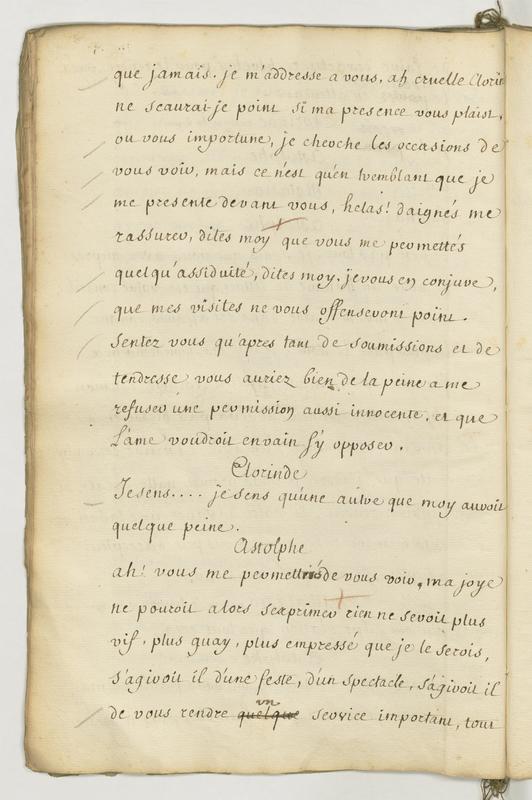 que jamais. je m'addresse a vous, ah cruelle Clorin
ne scaurai-je point si ma presence vous plaist,
ou vous importune, je cherche les occasions de
vous voir, mais ce n'est qu'en tremblant que je
me presente devant vous, helas! daignés me
rassurer, dites moy que vous me permettés
quelqu'assiduité, dites moy. je vous en conjure,
que mes visites ne vous offenseront point.
sentez vous qu'apres tant de soumissions et de
tendresse vous auriez bien de la peine a me
refuser une permission aussi innocente, et que
L'ame voudroit envain s'y opposer.
Clorinde
Je sens.... je sens qu'une autre que moy auroit
quelque peine.
Astolphe
ah! vous me permettriés de vous voir, ma joye
ne pouroit alors s'exprimer rien ne seroit plus
vif, plus guay, plus empressé que je le serois,
s'agiroit il d'une feste, d'un spectacle, s'agiroit il
un
de vous rendre quelque service important, tout